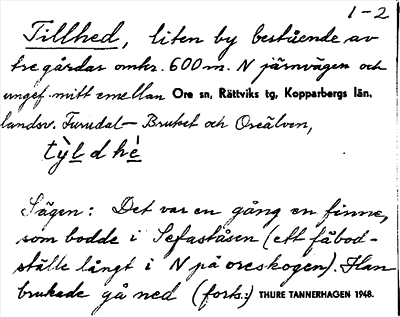 1-2
Tillhed, liten by bestående av
tre gårdar omkr. 600 m. N järnvägen och
ungef. mitt emellan Ore sn, Rättviks tg, Kopparbergs län.
landsv. Furudal - Bruket och Oreälven,
tỳl d hé
Sägen: Det var en gång en finne,
som bodde i Sefaståsen (ett fäbod-
ställe långt i N på oreskogen). Han
brukade gå ned (forts.:) THURE TANNERHAGEN 1948.